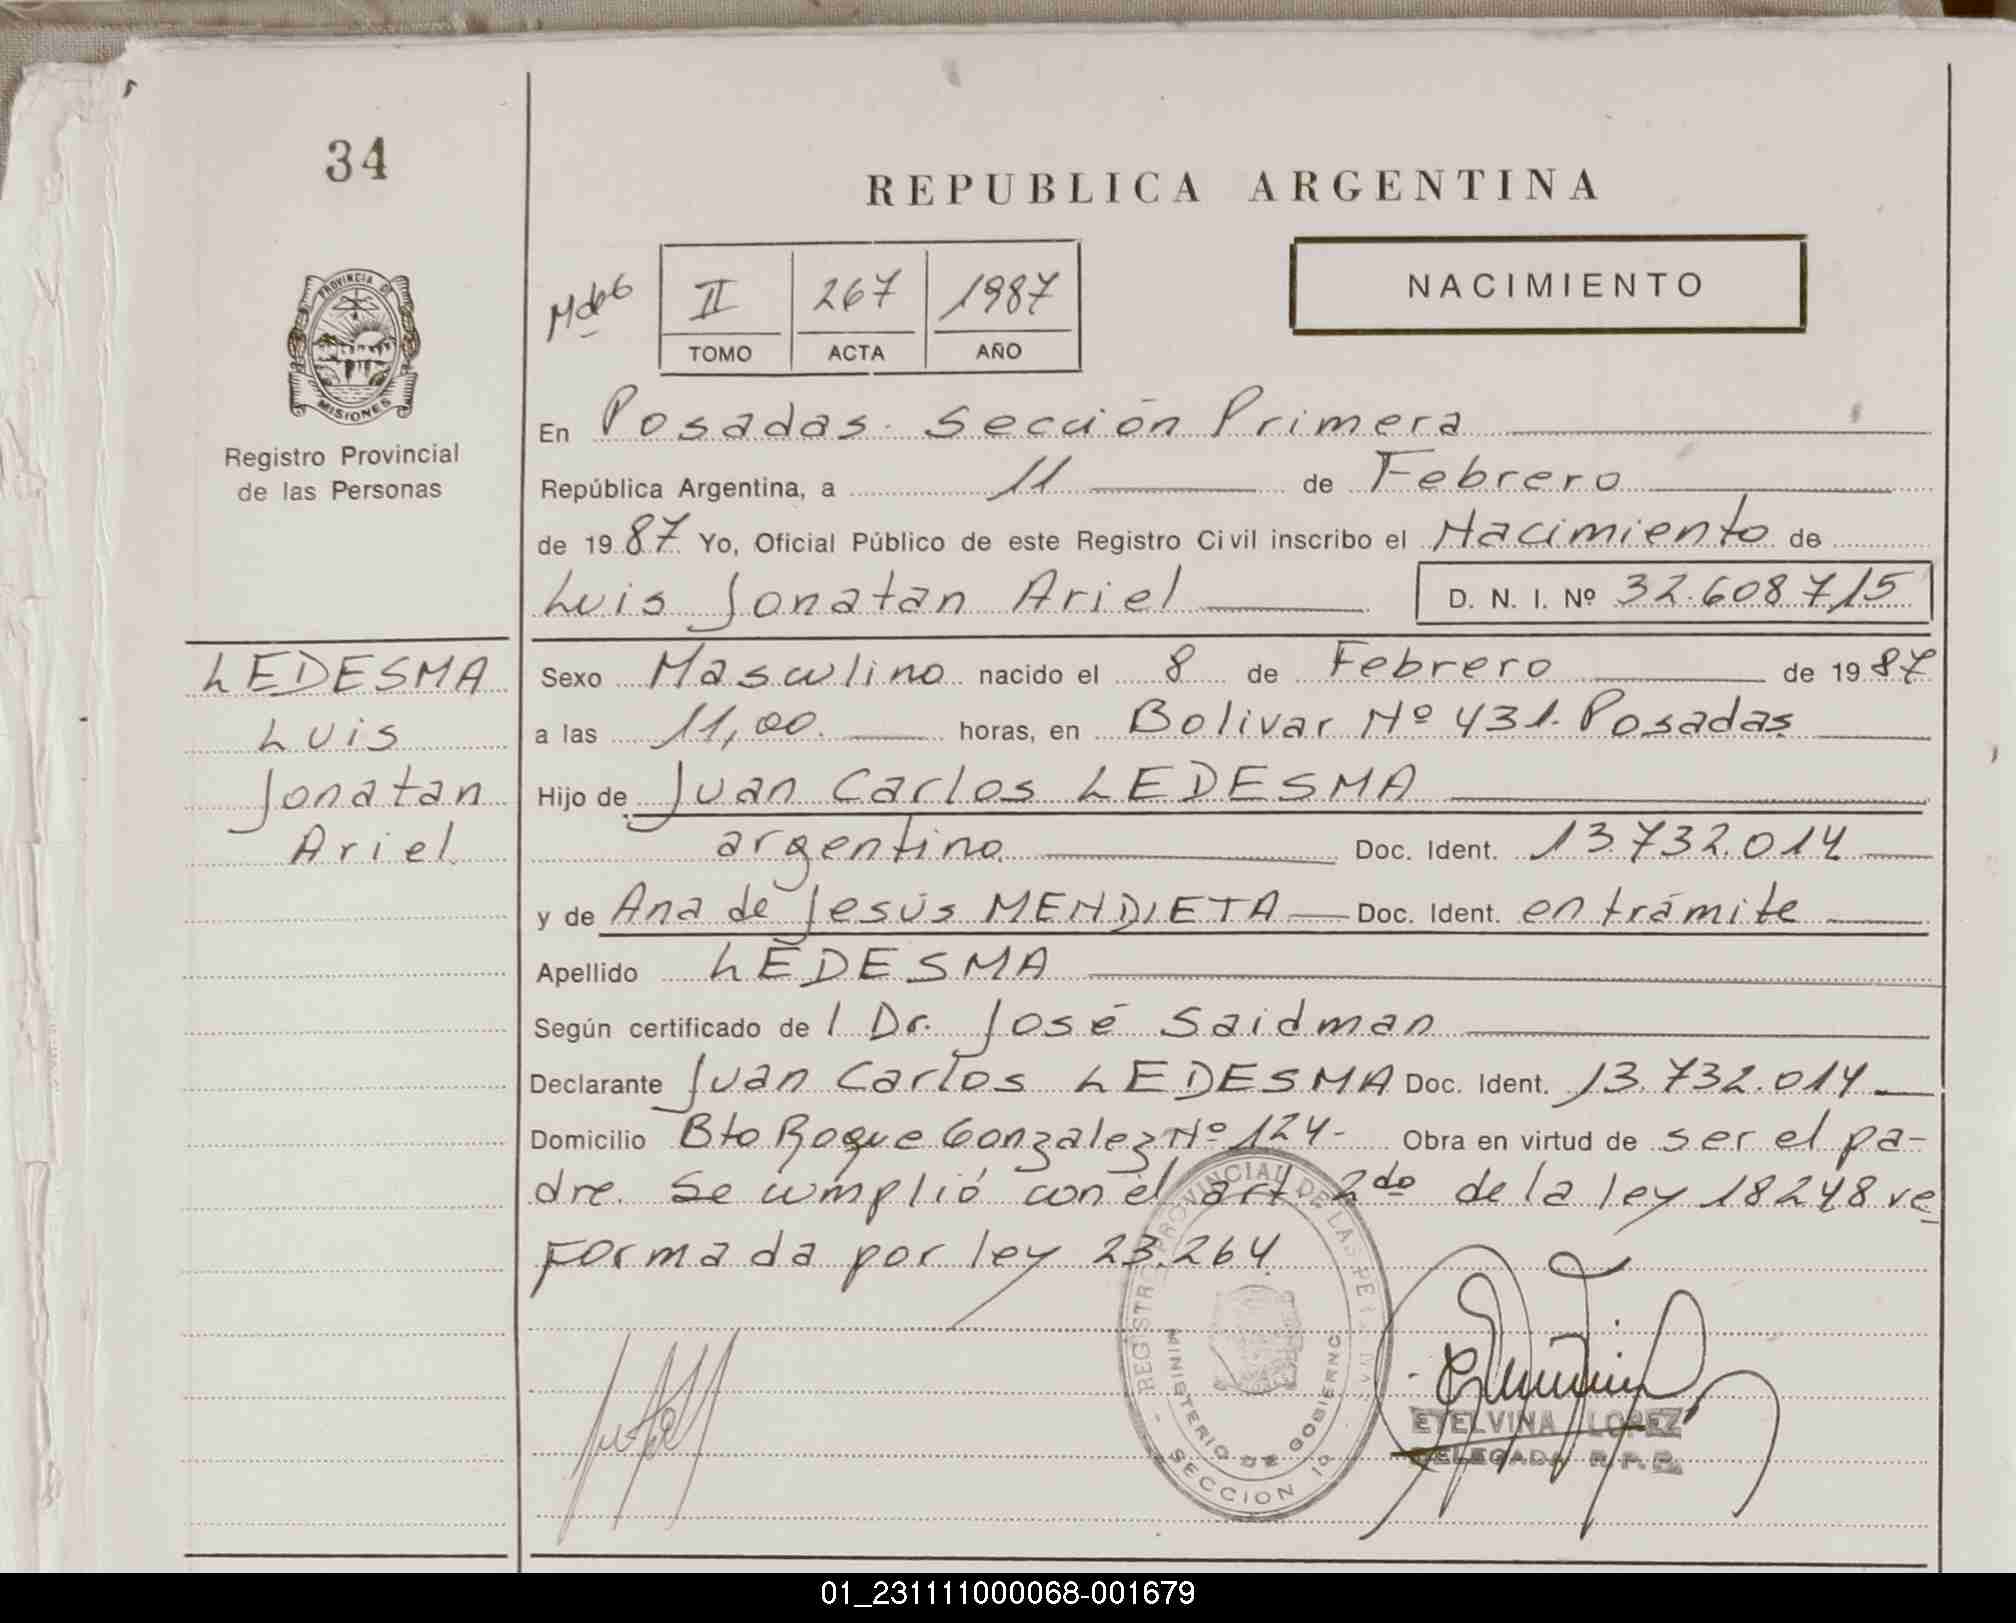 34
REPUBLICA ARGENTINA
NACIMIENTO
II 267 1987
TOMO ACTA AÑO
PROVINCIA DE
MISIONES
Registro Provincial
de las Personas
En Posadas. Sección Primera
República Argentina, a 11 de Febrero
de 1987 Yo, Oficial Público de este Registro Civil inscribo el Nacimiento de
Luis Jonatan Ariel D. N. I. Nº 32.608715
LEDESMA
Luis
Jonatan
Ariel
Sexo Masculino nacido el 8 de Febrero de 1987
a las 11,00. horas, en Bolivar Nº 431. Posadas
Hijo de Juan Carlos LEDESMA
argentino Doc. Ident. 13.732.014
y de Ana de Jesús MENDIETA Doc. Ident. en trámite
Apellido LEDESMA
Según certificado de l Dr. José Saidman
Declarante Juan Carlos LEDESMA Doc. Ident. 13.732.014
Domicilio Bto Roque Gonzalez Nº 124- Obra en virtud de ser el pa-
dre. Se cumplió con el art 2do de la ley 18248 re
formada por ley 23.264.
REGISTRO PROVINCIAL DE LAS PE
MINISTERIO DE GOBIERNO
SECCION 1º
ETELVINA LOPEZ
DELEGADA R.P.P.
01_231111000068-001679